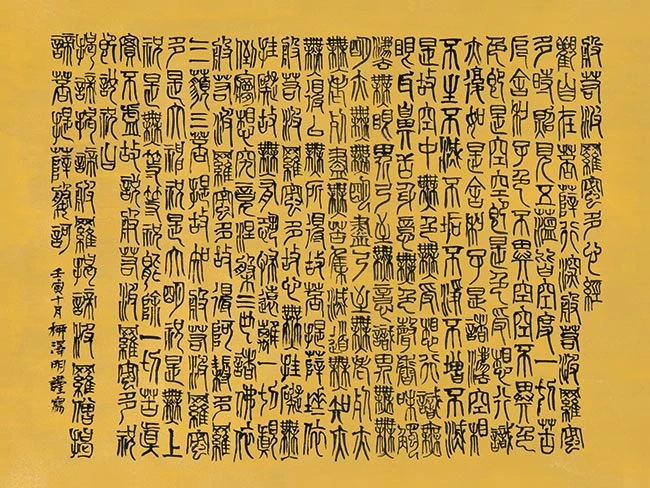 般若波羅蜜多心經
觀自在菩薩行深般若波羅蜜
多時照見五蘊皆空度一切苦
厄舍利子色不異空空不異色
色即是空空即是色受想行識
亦復如是舍利子是諸法空相
不生不滅不垢不淨不增不減
是故空中無色無受想行識無
眼耳鼻舌身意無色聲香味觸
法無眼界乃至無意識界無無
明亦無無明盡乃至無老死亦
無老死盡無苦集滅道無知亦
無得以無所得故菩提薩埵依
般若波羅蜜多故心無罣礙無
罣礙故無有恐怖遠離一切顛
倒夢想究竟涅槃三世諸佛依
般若波羅蜜多故得阿耨多羅
三藐三菩提故知般若波羅蜜
多是大神祝是大明祝是無上
祝是無等等祝能除一切苦真
實不虛故說般若波羅蜜多祝
即說祝曰
揭諦揭諦般羅揭諦波羅僧揭
諦菩提薩婆訶 壬寅十月 澤明謹寫